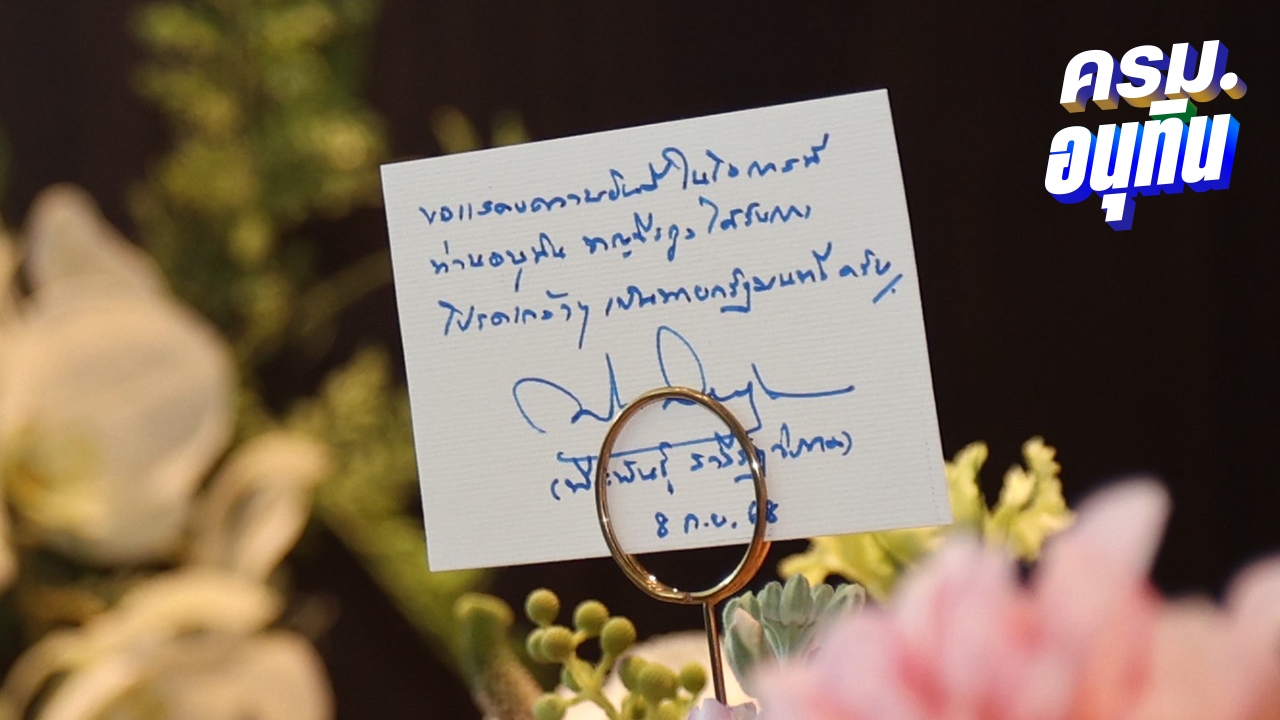 ขอแสดงความยินดี ในโอกาสที่
ท่านอนุทิน ชาญวีรกูล ได้รับการ
โปรดเกล้าฯ เป็นนายกรัฐมนตรี ครับ
(พีระพันธุ์ สาลีรัฐวิภาค)
8 ก.ย. 68
ครม.
อนุทิน